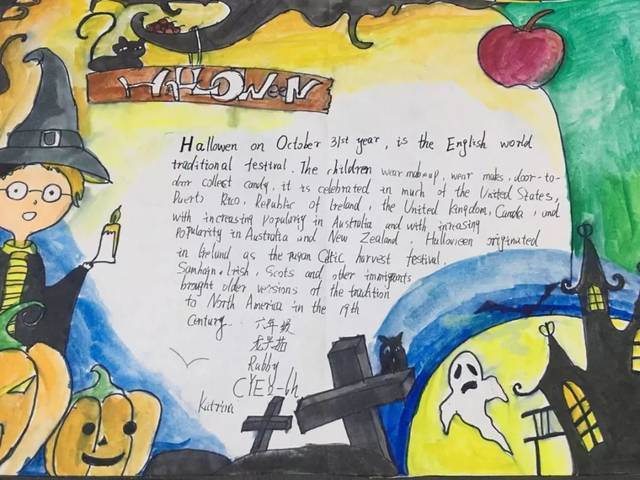 HALLOWEEN
Hallowen on October 31st year, is the English world
traditional festival. The children wear makeup, wear maks, door-to-
door collect candy. it is celebrated in much of the United States,
Puerto Rico, Republic of Ireland, the United Kingdom, Canda, and
with increasing popularity in Australia and with increasing
popularity in Australia and New Zealand. Halloween originated
in Ireland as the pagan Celtic harvest festival.
Samhain, Irish, Scots and other immigrants
brought older versions of the tradition
to North America in the 19th
Century.
六年级
Rubby
Katrina